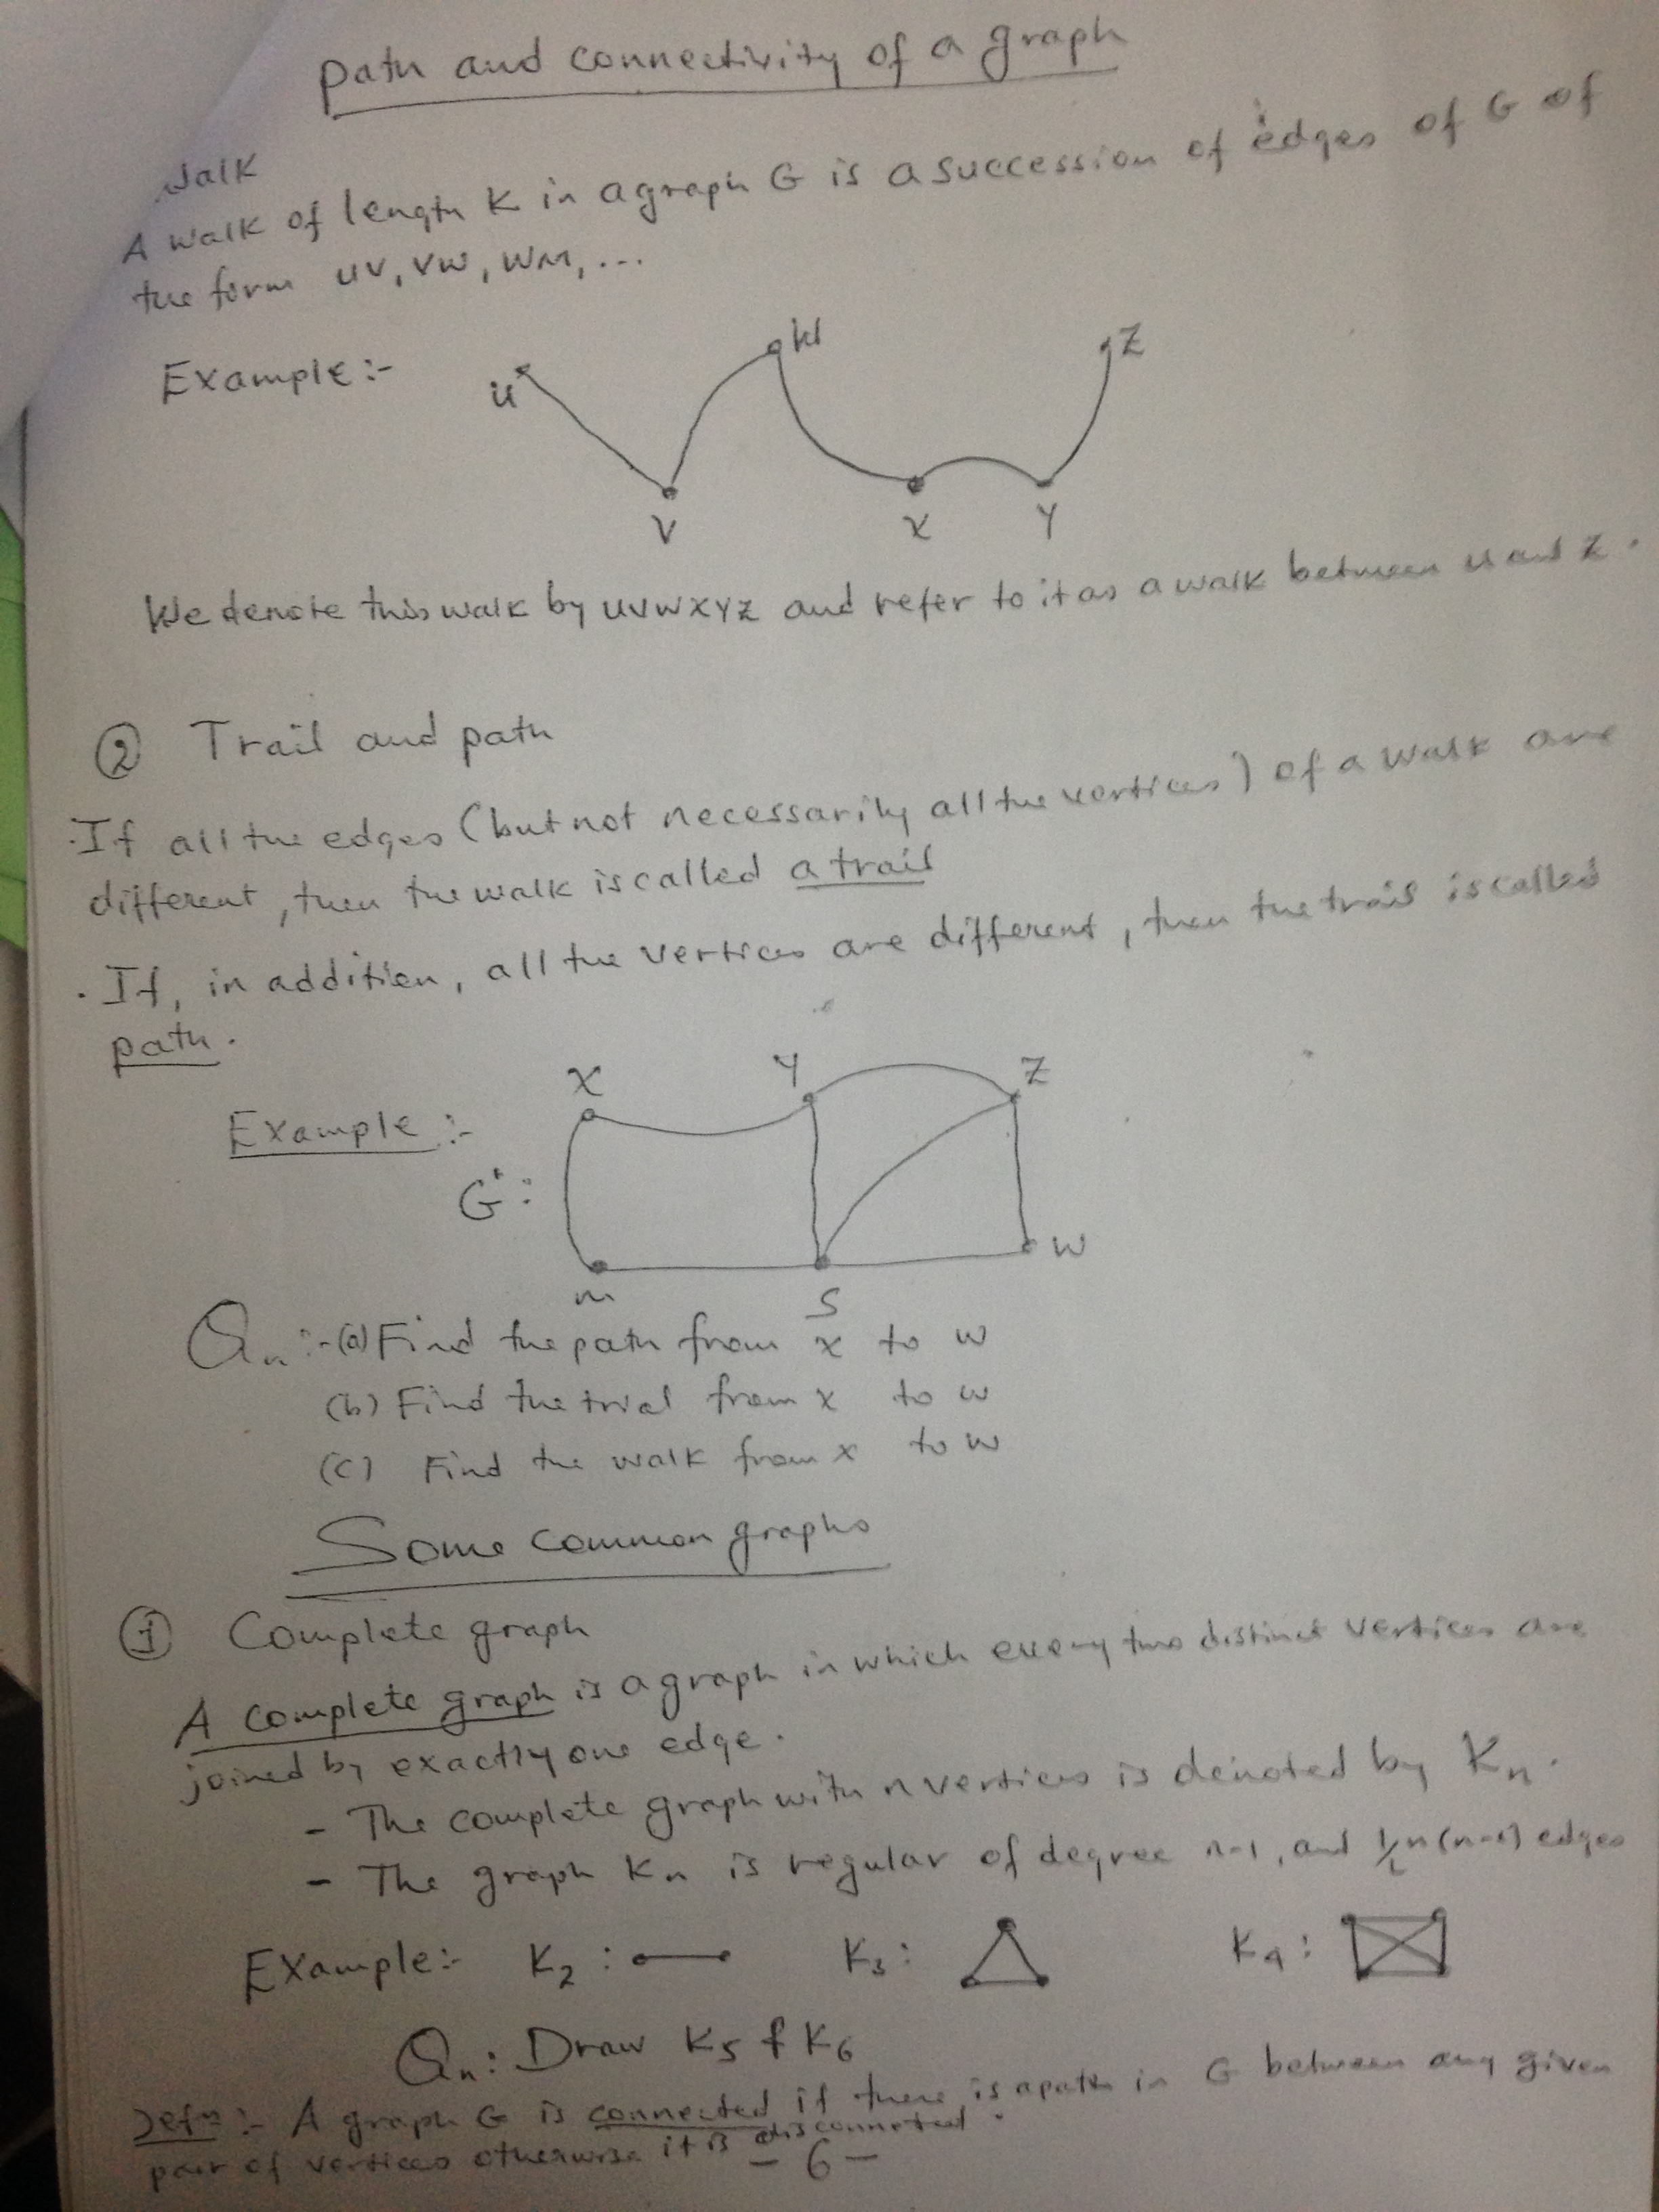 Path and connectivity of a graph
Walk
A walk of length K in a graph G is a succession of edges of G of
the form uv, vw, wm, ...
Example:-
u
W
Z
V
X
Y
We denote this walk by uvwxyz and refer to it as a walk between u and z.
② Trail and path
·If all the edges (but not necessarily all the vertices) of a walk are
different, then the walk is called a trail
·If, in addition, all the vertices are different, then the trail is called
path.
X Y Z
Example:-
G:
W
m S
Qn:-(a) Find the path from x to w
(b) Find the trial from x to w
(c) Find the walk from x to w
Some common graphs
① Complete graph
A complete graph is a graph in which every two distinct vertices are
joined by exactly one edge.
- The complete graph with n vertices is denoted by Kn.
- The graph Kn is regular of degree n-1, and 1/2 n(n-1) edges
Example:- K2: K3: K4:
Qn: Draw K5 & K6
Defn:- A graph G is connected if there is a path in G between any given
pair of vertices otherwise it is disconneted.
- 6 -